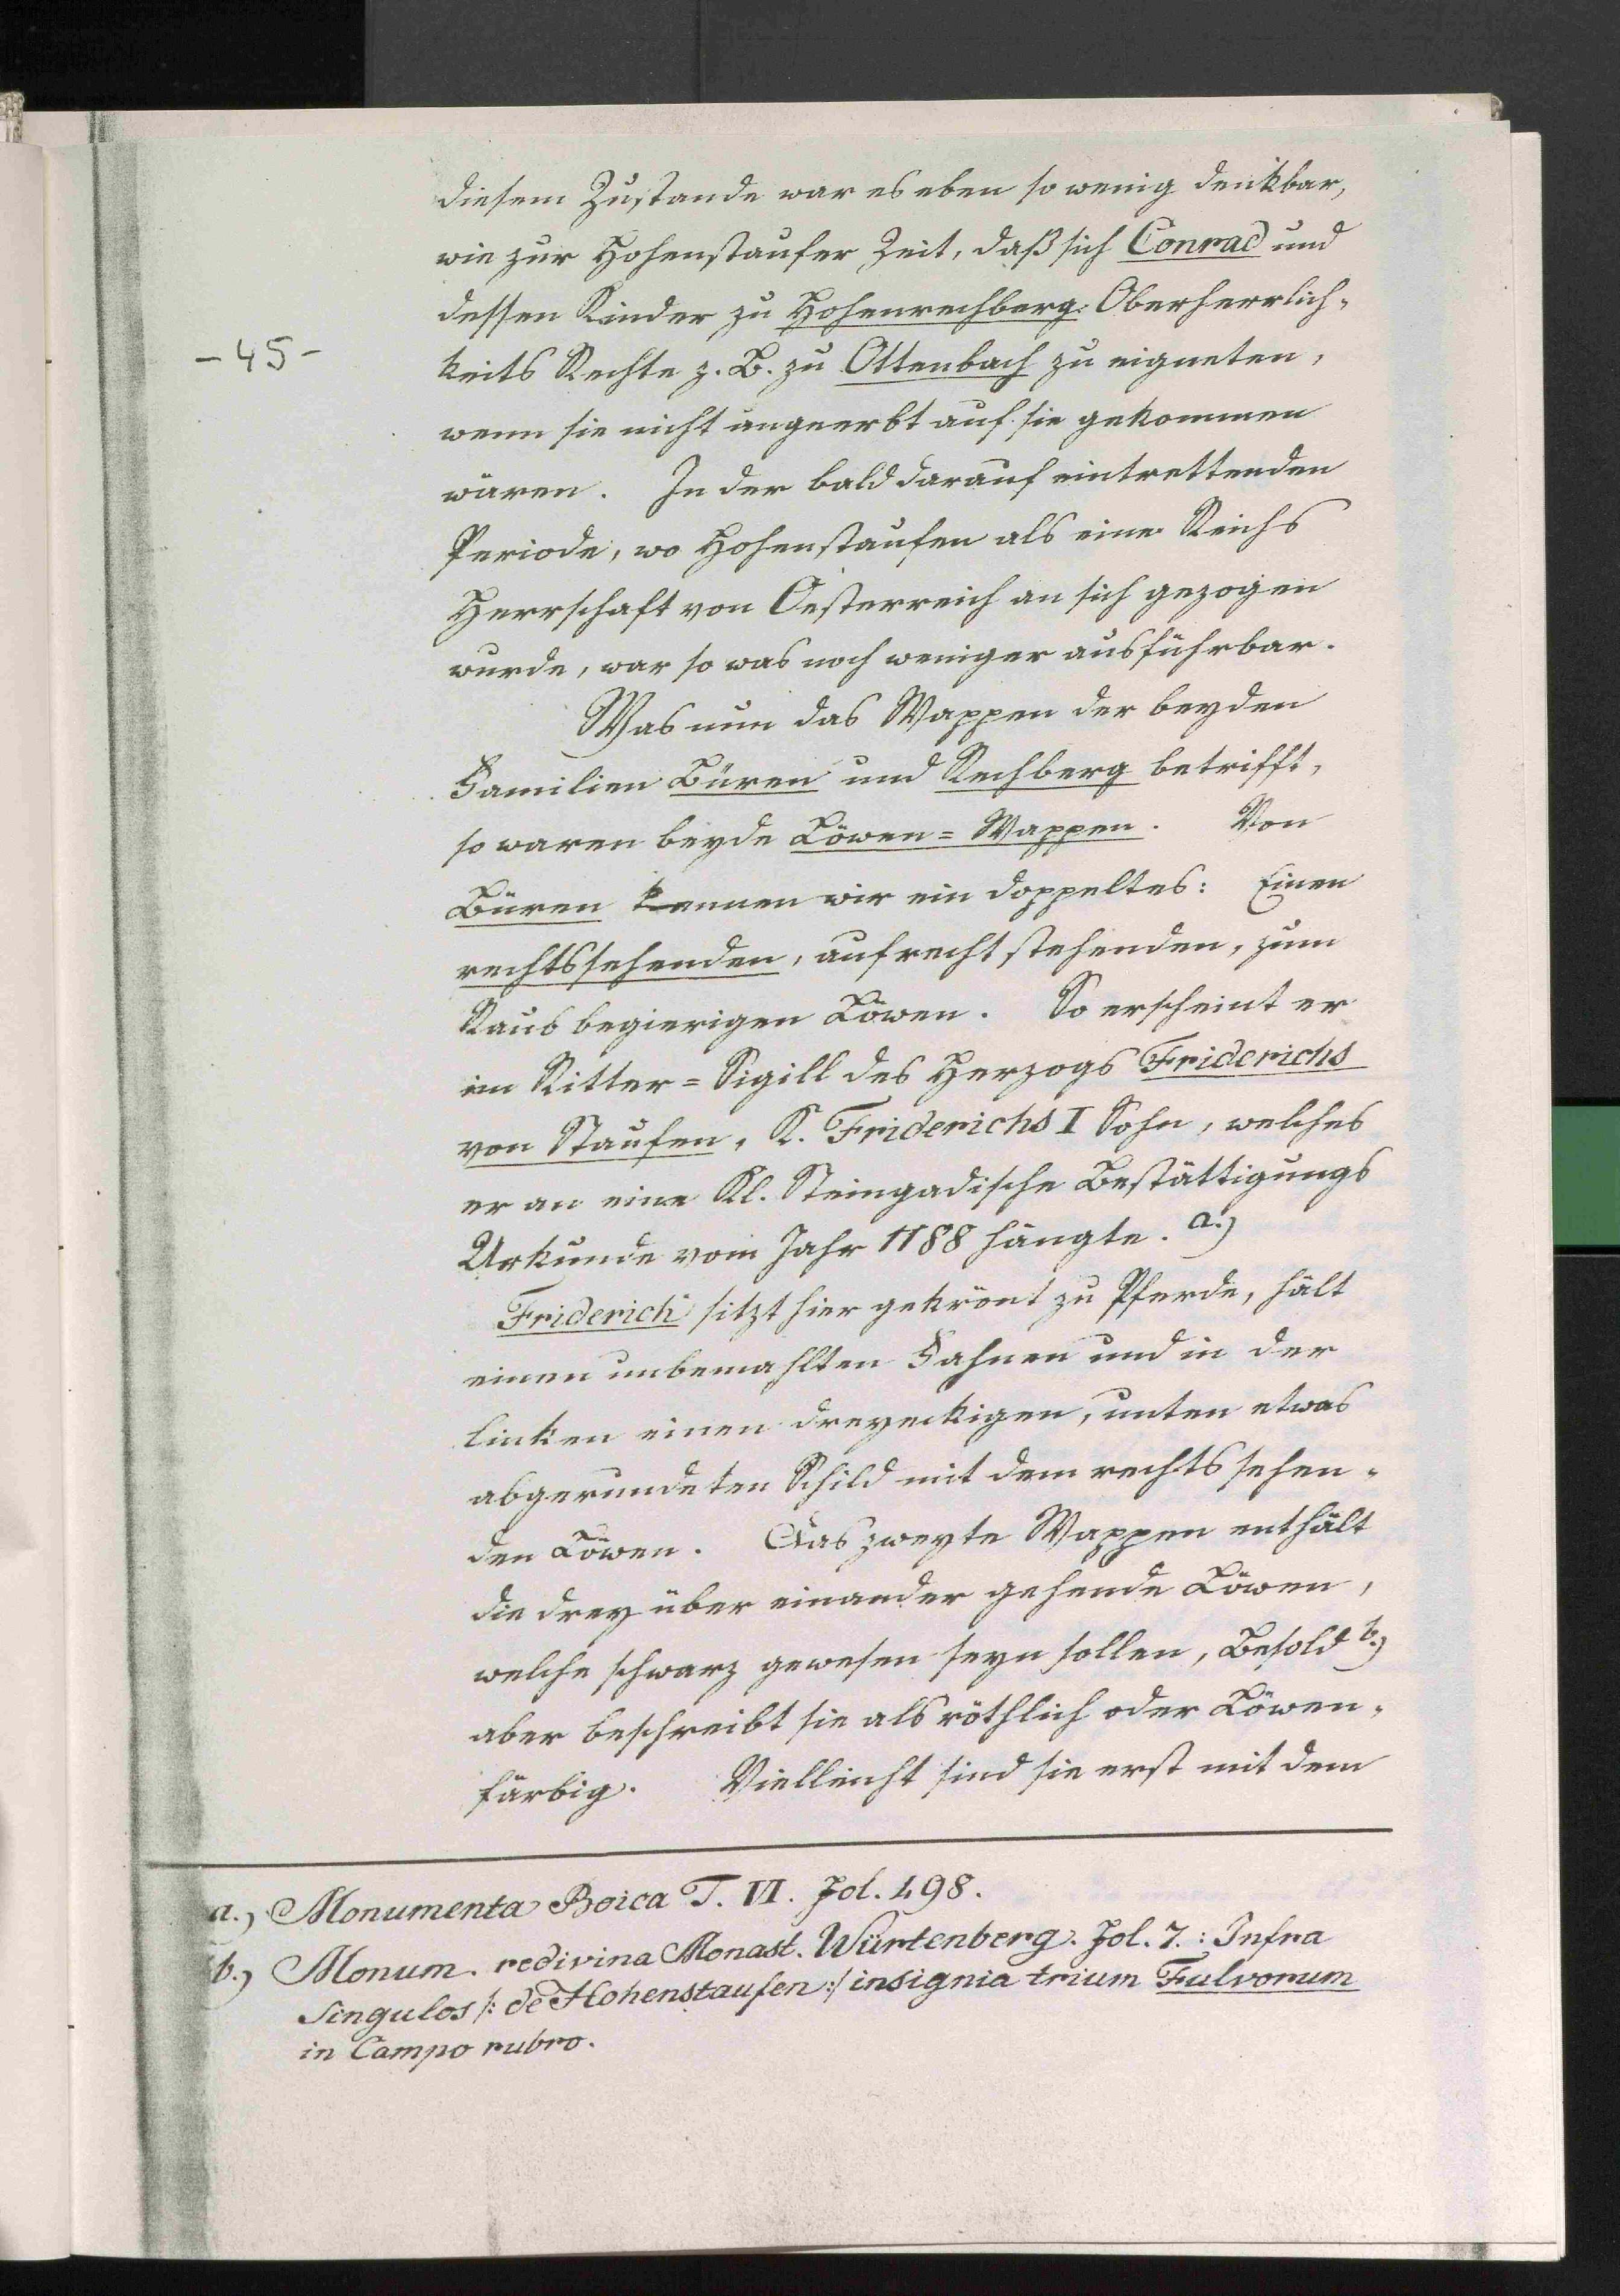 diesem Zustande war es eben so wenig denkbar,
wie zur Hohenstaufer Zeit, daß sich Conrad und
dessen Kinder zu Hohenrechberg Oberherrlich-
- 45 -
keits Rechte z. B. zu Ottenbach zu eigneten,
wenn sie nicht angeerbt auf sie gekommen
wären. In der bald darauf eintrettenden
Periode, wo Hohenstaufen als eine Reichs
Herrschaft von Oesterreich an sich gezogen
wurde, war so was noch weniger ausführbar.
Was nun das Wappen der beyden
Familien Büren und Rechberg betrifft,
so waren beyde Löwen=Wappen. Von
Büren kennen wir ein doppeltes: Einen
rechtssehenden, aufrecht stehenden, zum
Raub begierigen Löwen. So erscheint er
im Ritter=Sigill des Herzogs Friderichs
von Staufen, K. Friderichs I Sohn, welches
er an eine Kl. Steingadische Bestättigungs
Urkunde vom Jahr 1188 hängte. a.)
Friderich sitzt hier gekrönt zu Pferde, hält
einen unbemahlten Fahnen und in der
linken einen dreyeckigen, unten etwas
abgerundeten Schild mit dem rechts sehen-
den Löwen. Das zweyte Wappen enthält
die drey über einander gehende Löwen,
welche schwarz gewesen seyn sollen, Besold b.)
aber beschreibt sie als röthlich oder Löwen-
färbig. Vielleicht sind sie erst mit dem
a.) Monumenta Boica T. VI. Fol. 498.
b.) Monum. redivina Monast. Würtenberg. Fol. 7.: Infra
Singulos /: de Hohenstaufen :/ insignia trium Fulvorum
in Campo rubro.